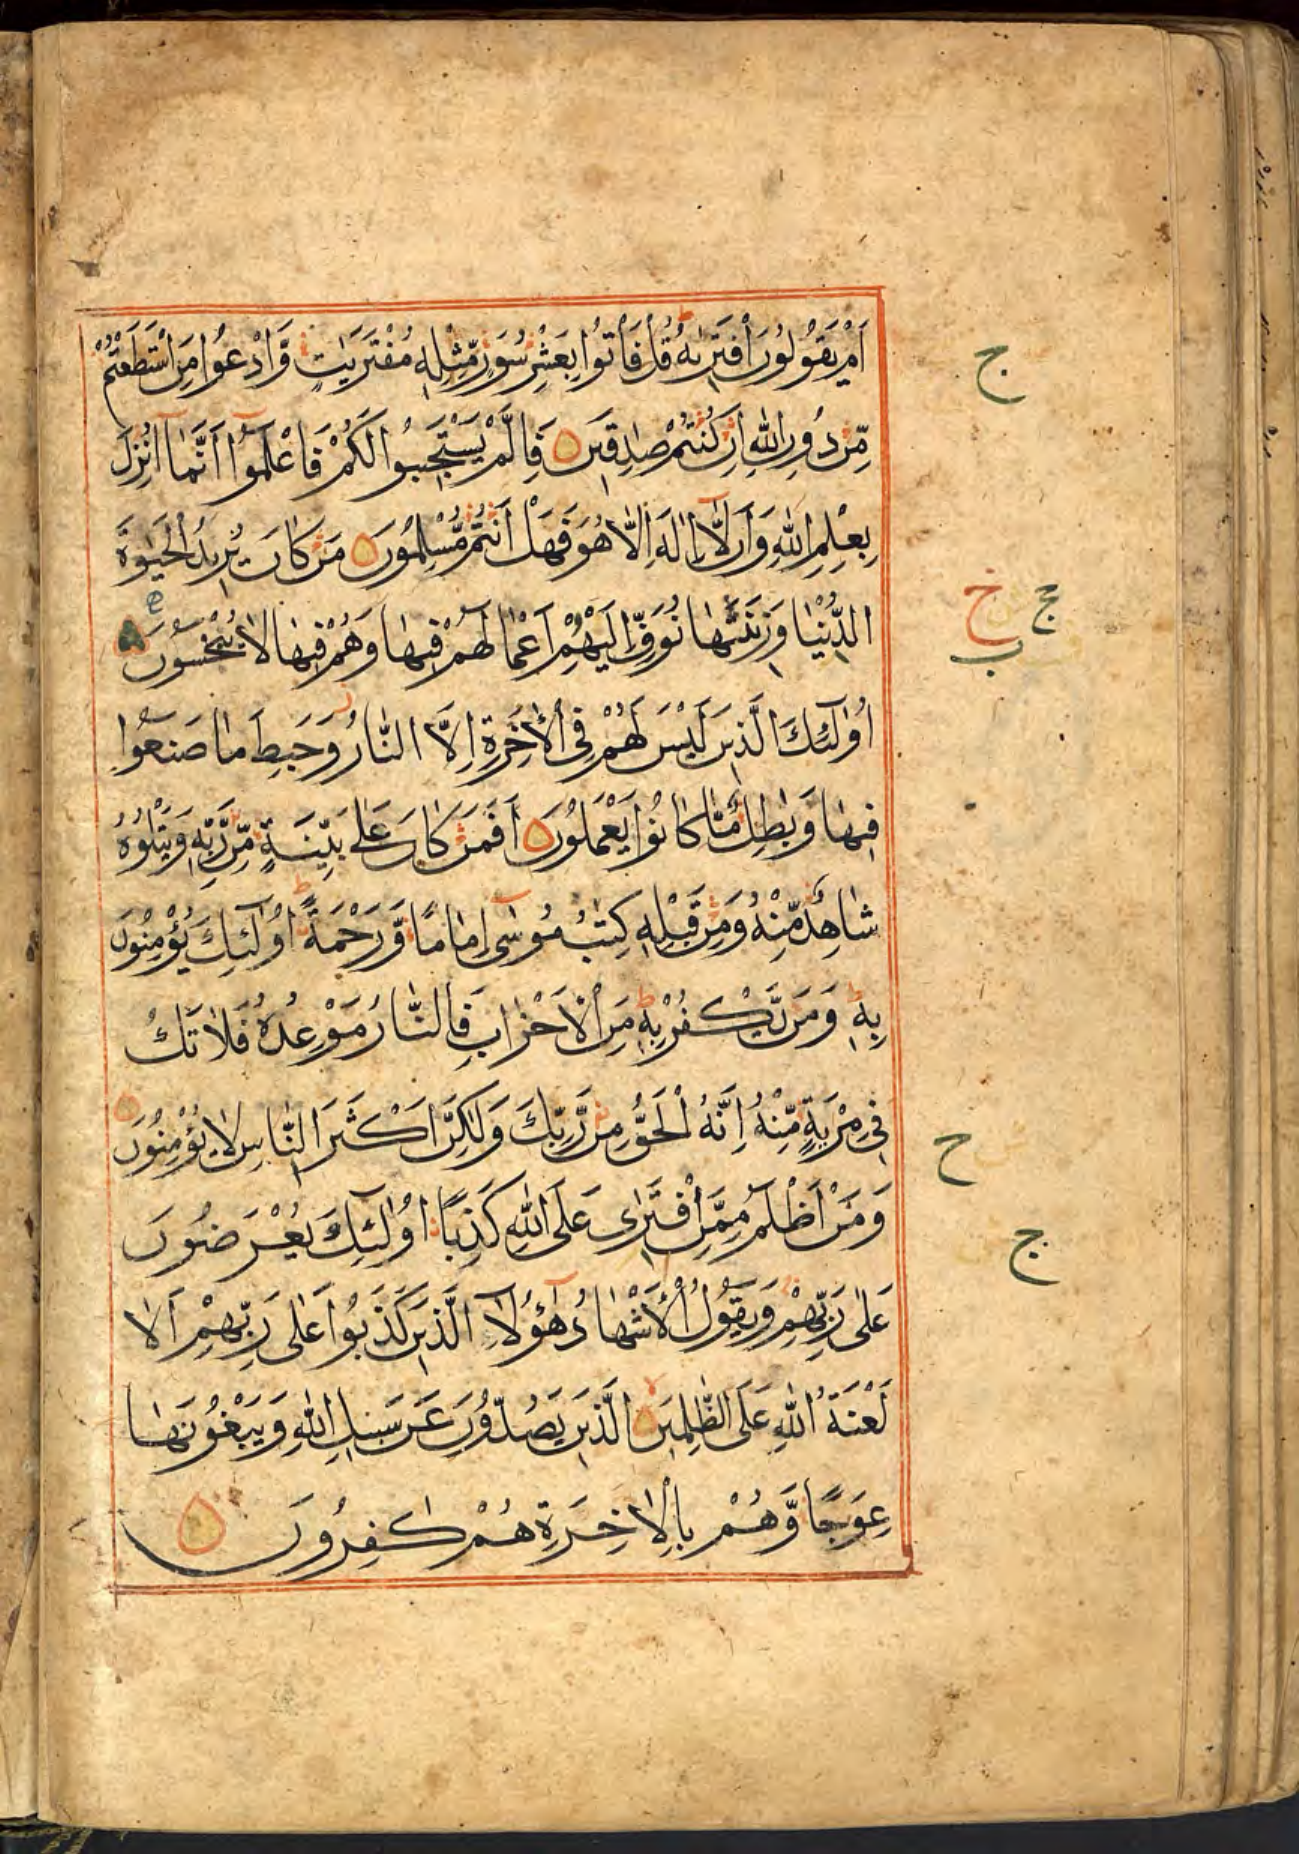 اَمْ يَقُوْلُوْنَ افْتَرٰىهُ ؕ قُلْ فَاْتُوْا بِعَشْرِ سُوَرٍ مِّثْلِهٖ مُفْتَرَيٰتٍ وَّادْعُوْا مَنِ اسْتَطَعْتُمْ
مِّنْ دُوْنِ اللّٰهِ اِنْ كُنْتُمْ صٰدِقِيْنَ فَاِلَّمْ يَسْتَجِيْبُوْا لَكُمْ فَاعْلَمُوْٓا اَنَّمَآ اُنْزِلَ
بِعِلْمِ اللّٰهِ وَاَنْ لَّآ اِلٰهَ اِلَّا هُوَ فَهَلْ اَنْتُمْ مُّسْلِمُوْنَ مَنْ كَانَ يُرِيْدُ الْحَيٰوةَ
الدُّنْيَا وَزِيْنَتَهَا نُوَفِّ اِلَيْهِمْ اَعْمَالَهُمْ فِيْهَا وَهُمْ فِيْهَا لَا يُبْخَسُوْنَ
اُولٰٓئِكَ الَّذِيْنَ لَيْسَ لَهُمْ فِى الْاٰخِرَةِ اِلَّا النَّارُ وَحَبِطَ مَا صَنَعُوْا
فِيْهَا وَبٰطِلٌ مَّا كَانُوْا يَعْمَلُوْنَ اَفَمَنْ كَانَ عَلٰى بَيِّنَةٍ مِّنْ رَّبِّهٖ وَيَتْلُوْهُ
شَاهِدٌ مِّنْهُ وَمِنْ قَبْلِهٖ كِتٰبُ مُوْسٰٓى اِمَامًا وَّرَحْمَةً ؕ اُولٰٓئِكَ يُؤْمِنُوْنَ
بِهٖ ؕ وَمَنْ يَّكْفُرْ بِهٖ مِنَ الْاَحْزَابِ فَالنَّارُ مَوْعِدُهٗ فَلَا تَكُ
فِيْ مِرْيَةٍ مِّنْهُ اِنَّهُ الْحَقُّ مِنْ رَّبِّكَ وَلٰكِنَّ اَكْثَرَ النَّاسِ لَا يُؤْمِنُوْنَ
وَمَنْ اَظْلَمُ مِمَّنِ افْتَرٰى عَلَى اللّٰهِ كَذِبًا اُولٰٓئِكَ يُعْرَضُوْنَ
عَلٰى رَبِّهِمْ وَيَقُوْلُ الْاَشْهَادُ هٰٓؤُلَآءِ الَّذِيْنَ كَذَبُوْا عَلٰى رَبِّهِمْ اَلَا
لَعْنَةُ اللّٰهِ عَلَى الظّٰلِمِيْنَ الَّذِيْنَ يَصُدُّوْنَ عَنْ سَبِيْلِ اللّٰهِ وَيَبْغُوْنَهَا
عِوَجًا وَّهُمْ بِالْاٰخِرَةِ هُمْ كٰفِرُوْنَ
ج
ج
ح
ج